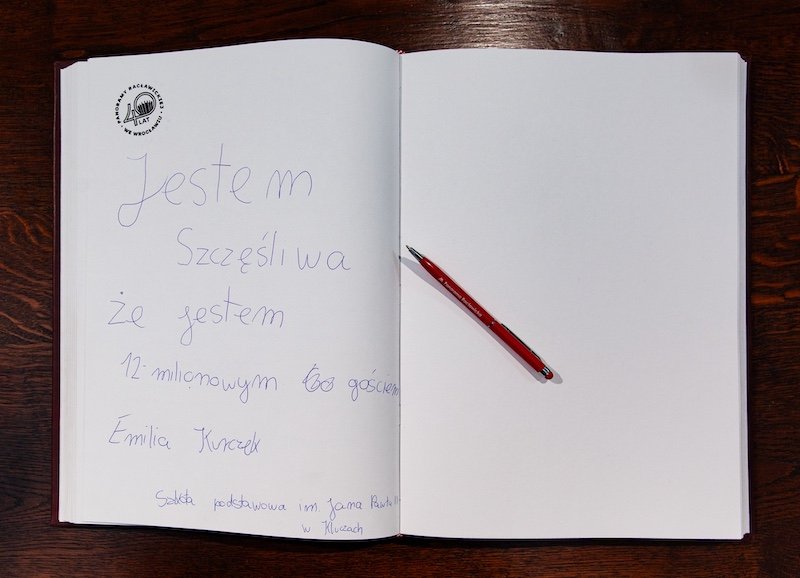 PANORAMY RACŁAWICKIEJ
40
LAT
WE WROCŁAWIU
Jestem
Szczęśliwa
że jestem
12-milionowym gościem
Emilia Kurczek
Szkoła podstawowa im. Jana Pawła II
w Kluczach